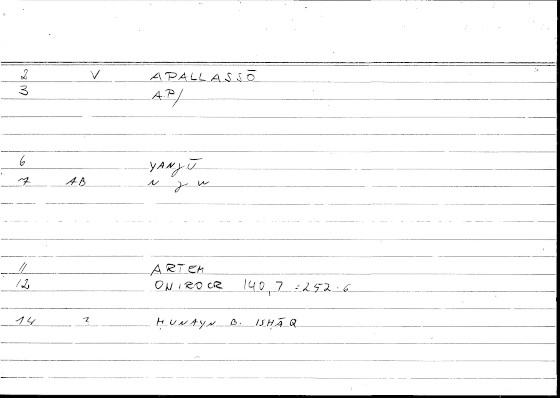 2 V APALLASSŌ
3 AP/
6 YANǧŪ
7 AB N ǧ W
11 ARTEM
12 ONIROCR 140,7 = 252.6
14 2 ḤUNAYN B. ISḤĀQ